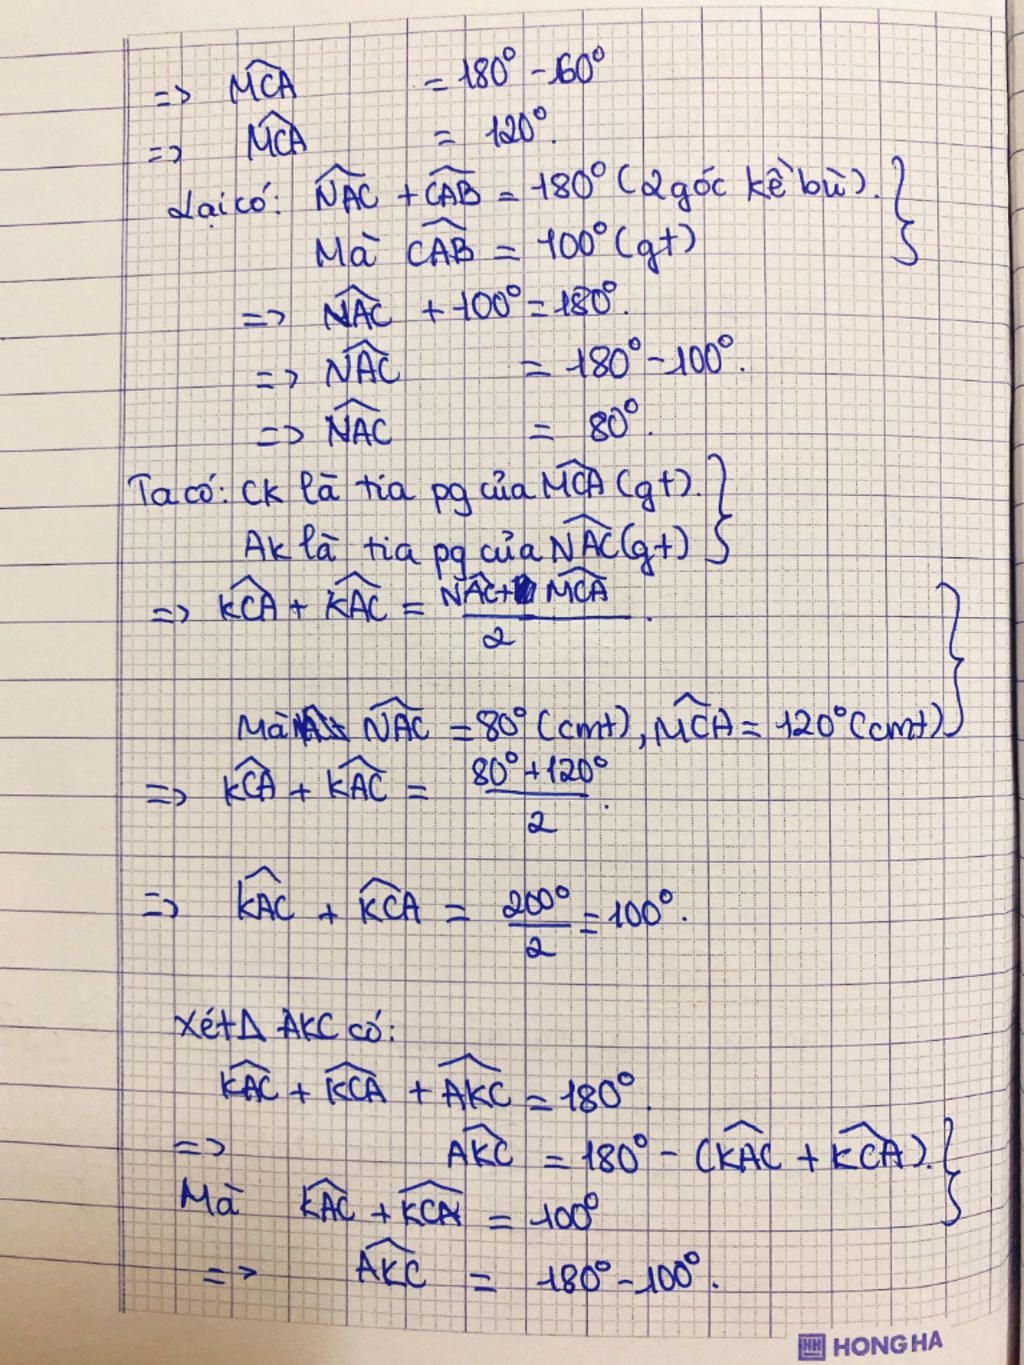 => MCA = 180° - 60°
=> MCA = 120°.
Lại có: NAC + CAB = 180° (2 góc kề bù).
Mà CAB = 100° (gt)
=> NAC + 100° = 180°.
=> NAC = 180° - 100°.
=> NAC = 80°.
Ta có: CK là tia pg của MCA (gt).
AK là tia pg của NAC (gt)
=> KCA + KAC = NAC + MCA
2
Mà NAC = 80° (cmt), MCA = 120° (cmt)
=> KCA + KAC = 80° + 120°
2
=> KAC + KCA = 200°/2 = 100°.
Xét Δ AKC có:
KAC + KCA + AKC = 180°.
=> AKC = 180° - (KAC + KCA).
Mà KAC + KCA = 100°
=> AKC = 180° - 100°.
HONG HA